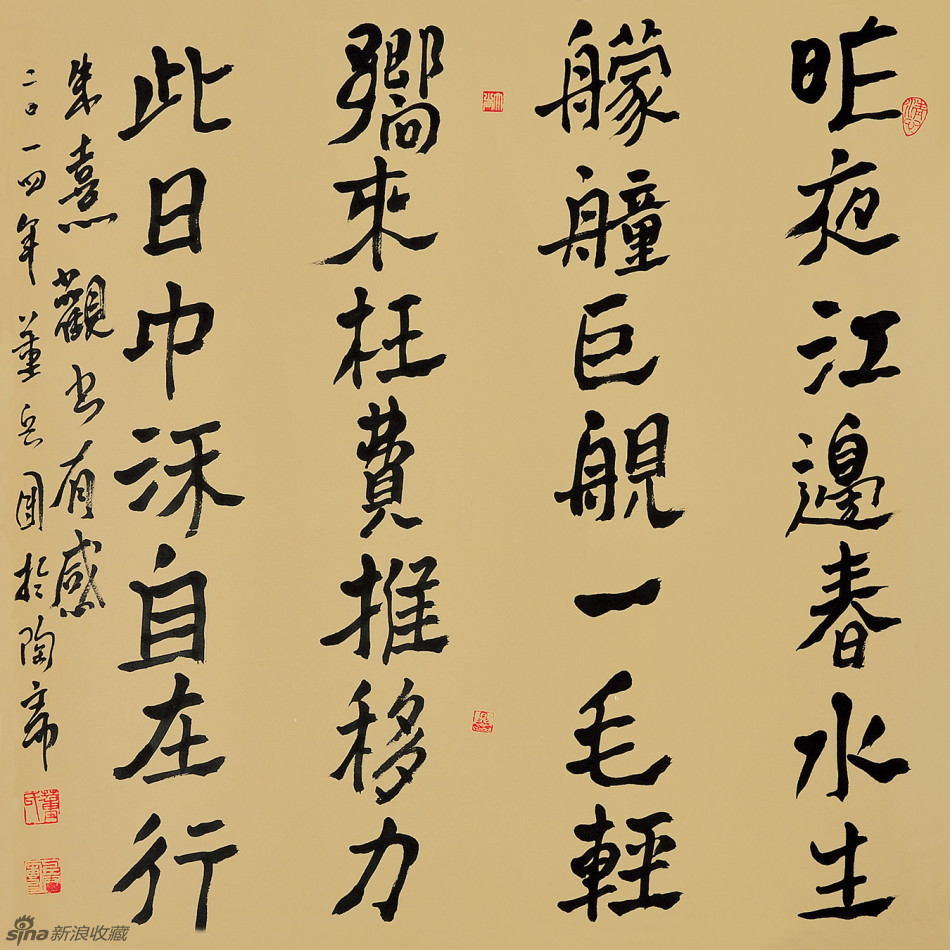 昨夜江邊春水生
艨艟巨舰一毛輕
嚮來枉費推移力
此日中流自在行
朱熹觀书有感
二〇一四年董兵於陶斋
sina新浪收藏